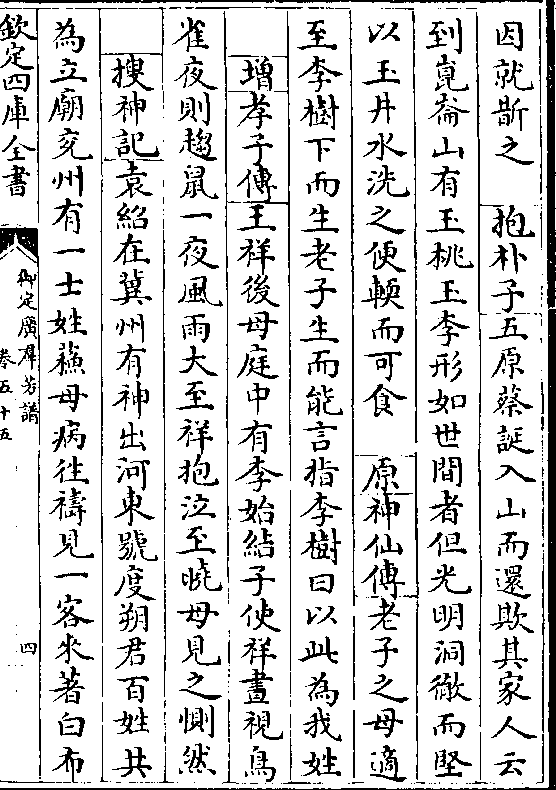 因就斮之　抱朴子五原蔡誕入山而還欺其家人云
到崑崙山有玉桃玉李形如世間者但光明洞徹而堅
以玉井水洗之便輭而可食　原神仙傳老子之母適
至李樹下而生老子生而能言指李樹曰以此為我姓
增孝子傳王祥後母庭中有李始結子使祥晝視鳥
雀夜則趨鼠一夜風雨大至祥抱泣至曉母見之惻然
搜神記袁紹在冀州有神出河東號度朔君百姓共
為立廟兖州有一士姓蘓母病往禱見一客來著白布
欽定四庫全書
御定廣羣芳譜
卷五十五
四